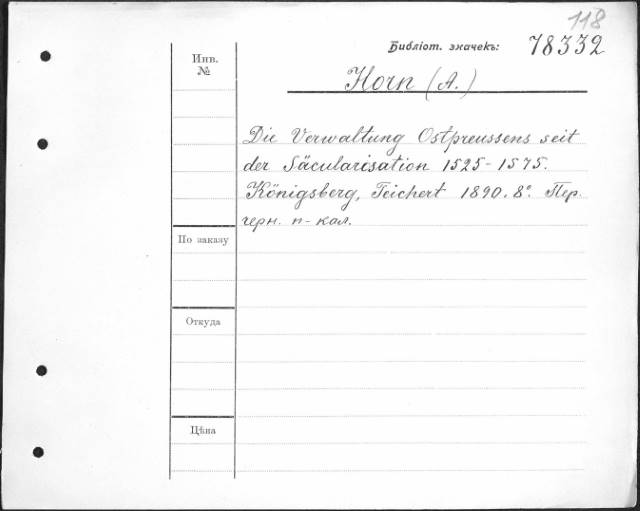 118
Библіот. значекъ: 78332
Инв.
№
Horn (A.)
Die Verwaltung Ostpreussens seit
der Säcularisation 1525-1575.
Königsberg, Teichert 1890. 8°. Пер.
черн. п-кал.
По заказу
Откуда
Цѣна